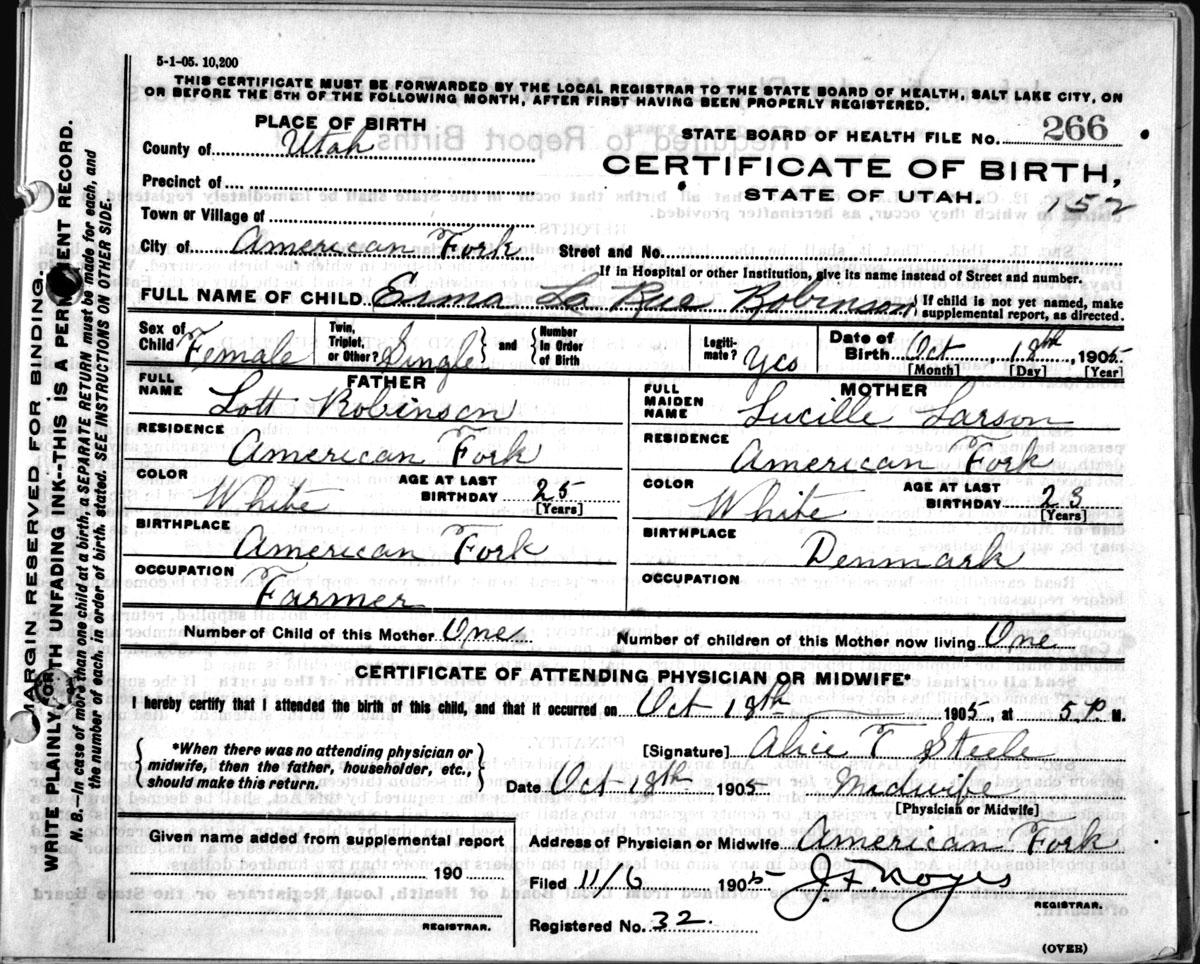 5-1-05. 10,200
THIS CERTIFICATE MUST BE FORWARDED BY THE LOCAL REGISTRAR TO THE STATE BOARD OF HEALTH, SALT LAKE CITY, ON
OR BEFORE THE 5TH OF THE FOLLOWING MONTH, AFTER FIRST HAVING BEEN PROPERLY REGISTERED.
PLACE OF BIRTH
STATE BOARD OF HEALTH FILE No. 266
County of Utah
CERTIFICATE OF BIRTH,
Precinct of
STATE OF UTAH. 152
Town or Village of
City of American Fork Street and No.
If in Hospital or other Institution, give its name instead of Street and number.
FULL NAME OF CHILD La Rue Robinson { If child is not yet named, make supplemental report, as directed.
Sex of Child Female Twin, Triplet, or Other? Single } and { Number In Order of Birth Legitimate? Yes Date of Birth Oct, 18th, 1905
[Month] [Day] [Year]
FATHER
FULL NAME Lott Robinson
RESIDENCE American Fork
COLOR White AGE AT LAST BIRTHDAY 25 [Years]
BIRTHPLACE American Fork
OCCUPATION Farmer
MOTHER
FULL MAIDEN NAME Lucille Larson
RESIDENCE American Fork
COLOR White AGE AT LAST BIRTHDAY 23 [Years]
BIRTHPLACE Denmark
OCCUPATION
Number of Child of this Mother One Number of children of this Mother now living One
CERTIFICATE OF ATTENDING PHYSICIAN OR MIDWIFE*
I hereby certify that I attended the birth of this child, and that it occurred on Oct 18th 1905, at 5 P. M.
{ *When there was no attending physician or midwife, then the father, householder, etc., should make this return. }
[Signature] Alice T Steele
Date Oct-18th 1905 Midwife
[Physician or Midwife]
Given name added from supplemental report
190
REGISTRAR.
Address of Physician or Midwife American Fork
Filed 11/6 1905 J. F. Noyes
REGISTRAR.
Registered No. 32.
(OVER)
MARGIN RESERVED FOR BINDING.
WRITE PLAINLY WITH UNFADING INK--THIS IS A PERMANENT RECORD.
N. B.--In case of more than one child at a birth, a SEPARATE RETURN must be made for each, and
the number of each, in order of birth, stated. SEE INSTRUCTIONS ON OTHER SIDE.